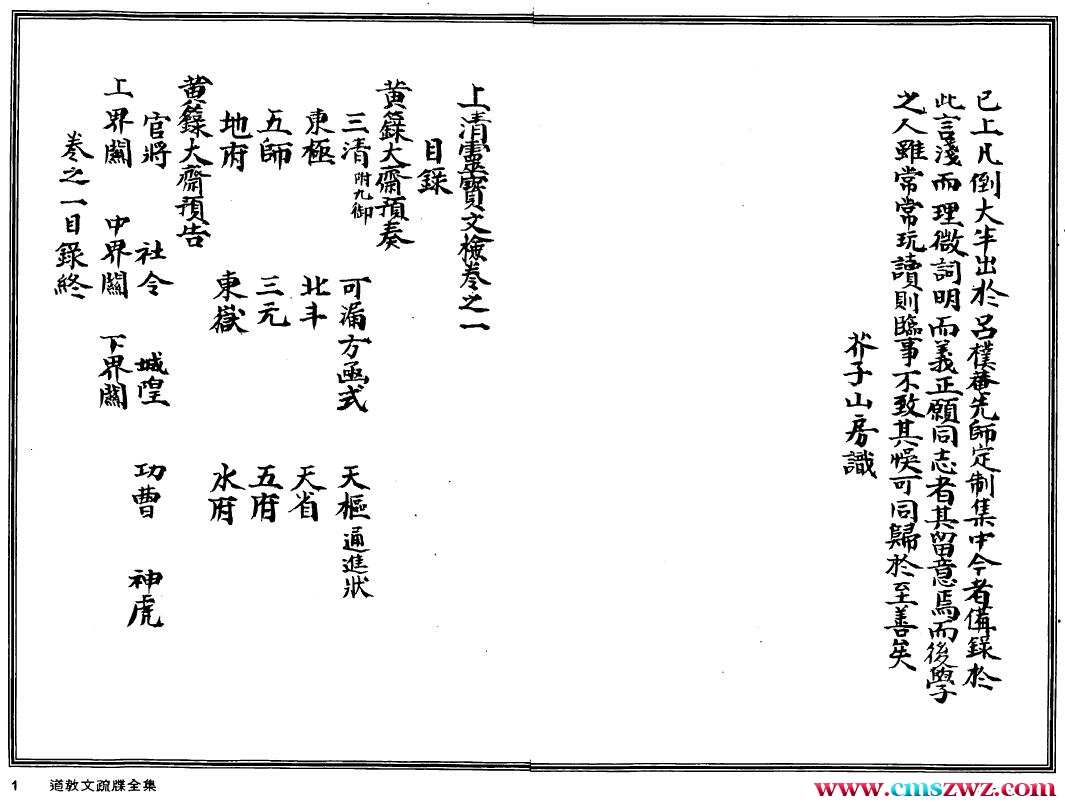 已上凡倒大半出於呂樸菴先師定制集中今者備錄於
此言淺而理微詞明而義正願同志者其留意焉而後學
之人雖常常玩讀則臨事不致其悞可同歸於至善矣
芥子山房識
上清靈寶文檢卷之一
目錄
黃籙大齋預奏
三清附九御 可漏方函式 天樞通進狀
東極 北斗 天省
五師 三元 五府
地府 東嶽 水府
黃籙大齋預告
官將 社令 城隍 功曹 神虎
上界關 中界關 下界關
卷之一目錄終
1 道教文疏牒全集
www.cmszwz.com